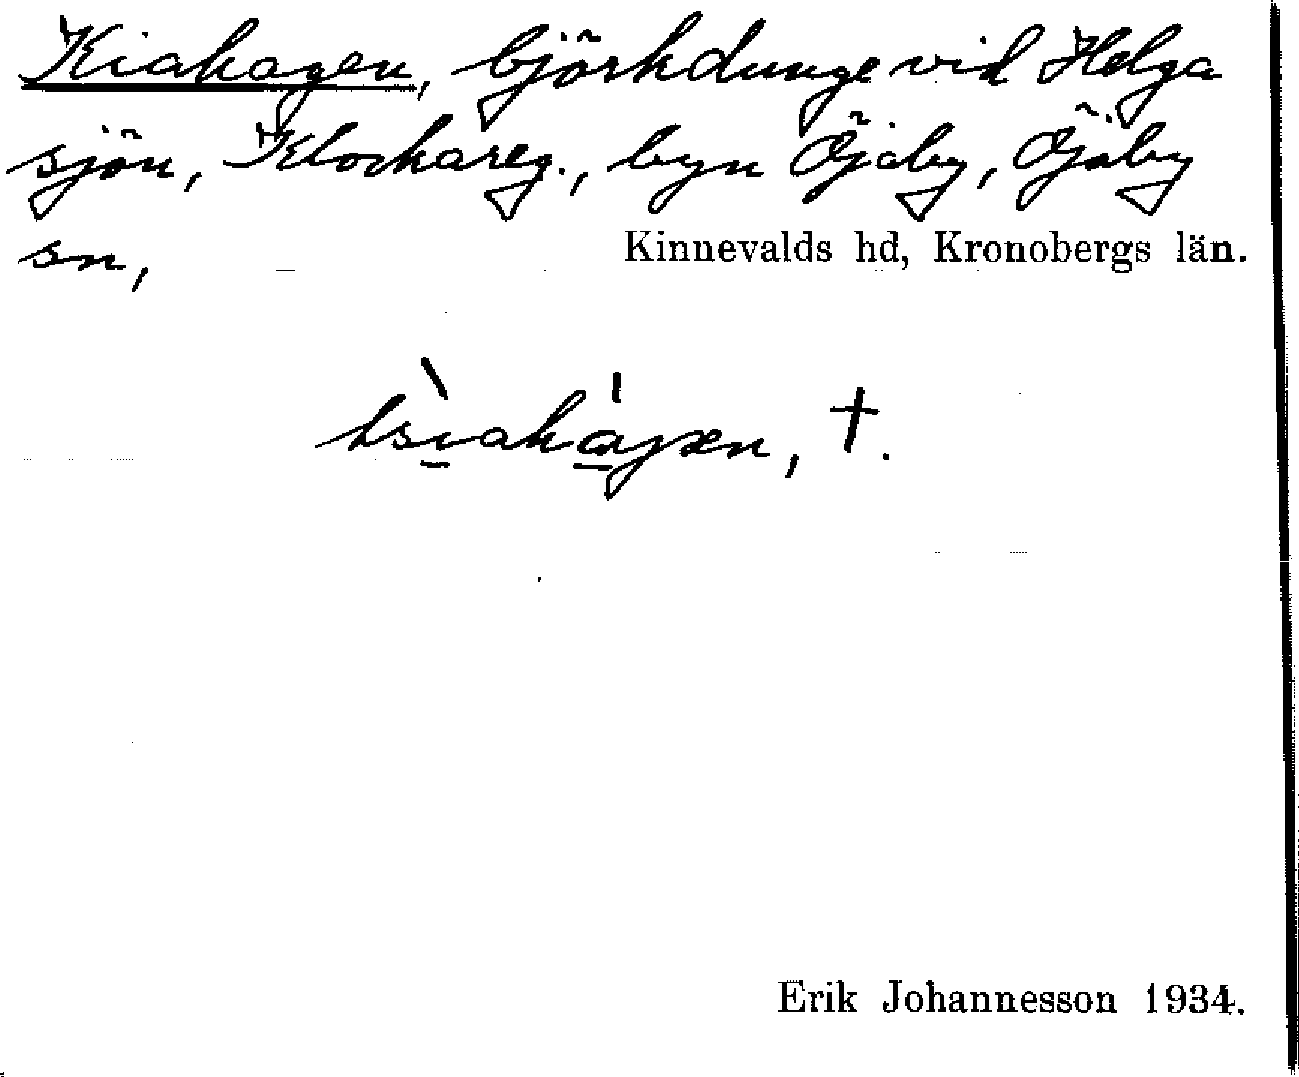 Kiahagen, björkdunge vid Helga
sjön, Klockareg., byn Öjaby, Öjaby
sn, Kinnevalds hd, Kronobergs län.
†.
Erik Johannesson 1934.